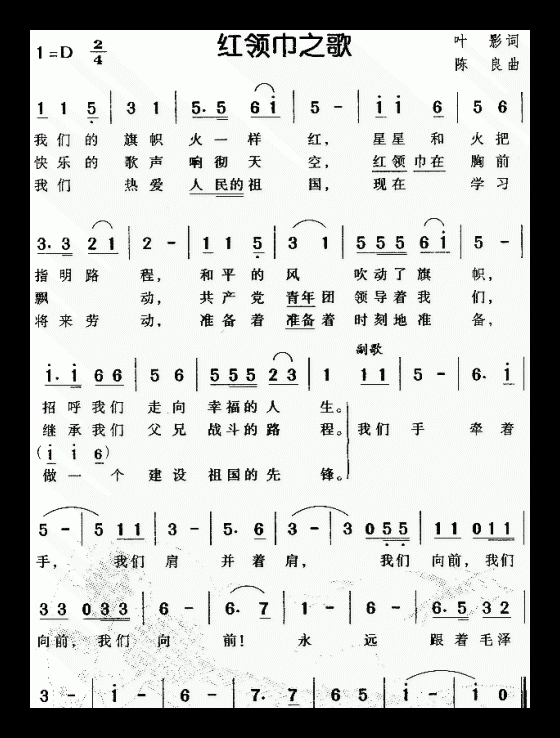 红领巾之歌
1=D 2/4
叶 影 词
陈 良 曲
1 1 5 | 3 1 | 5. 5 6 i | 5 - | i i 6 | 5 6 |
我们的 旗帜 火一样 红, 星星 和 火把
快乐的 歌声 响彻天 空, 红领巾在 胸前
我们 热爱 人民的祖 国, 现在 学习
3. 3 2 1 | 2 - | 1 1 5 | 3 1 | 5 5 5 6 i | 5 - |
指明路 程, 和平的 风 吹动了旗 帜,
飘 动, 共产党 青年团 领导着我 们,
将来劳 动, 准备着 准备着 时刻地准 备,
副歌
i. i 6 6 | 5 6 | 5 5 5 2 3 | 1 1 1 | 5 - | 6. i |
招呼我们 走向 幸福的人 生。
继承我们 父兄 战斗的路 程。 我们 手 牵着
(i i 6)
做一个 建设 祖国的先 锋。
5 - | 5 1 1 | 3 - | 5. 6 | 3 - | 3 0 5 5 | 1 1 0 1 1 |
手, 我们 肩 并着 肩, 我们 向前, 我们
3 3 0 3 3 | 6 - | 6. 7 | 1 - | 6 - | 6. 5 3 2 |
向前, 我们 向 前! 永 远 跟着毛泽
3 - | i - | 6 - | 7. 7 | 6 5 | i - | i 0 ‖